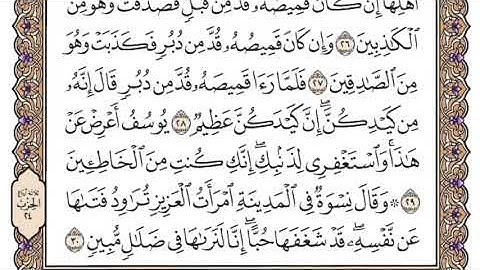 أَهْلِهَآ إِن كَانَ قَمِيصُهُۥ قُدَّ مِن قُبُلٍ فَصَدَقَتْ وَهُوَ مِنَ
ٱلْكَٰذِبِينَ ٢٦ وَإِن كَانَ قَمِيصُهُۥ قُدَّ مِن دُبُرٍ فَكَذَبَتْ وَهُوَ
مِنَ ٱلصَّٰدِقِينَ ٢٧ فَلَمَّا رَءَا قَمِيصَهُۥ قُدَّ مِن دُبُرٍ قَالَ إِنَّهُۥ
مِن كَيْدِكُنَّ ۖ إِنَّ كَيْدَكُنَّ عَظِيمٌ ٢٨ يُوسُفُ أَعْرِضْ عَنْ
هَٰذَا ۚ وَٱسْتَغْفِرِى لِذَنۢبِكِ ۖ إِنَّكِ كُنتِ مِنَ ٱلْخَاطِـِٔينَ
٢٩ ۞ وَقَالَ نِسْوَةٌ فِى ٱلْمَدِينَةِ ٱمْرَأَتُ ٱلْعَزِيزِ تُرَٰوِدُ فَتَىٰهَا
عَن نَّفْسِهِۦ ۖ قَدْ شَغَفَهَا حُبًّا ۖ إِنَّا لَنَرَىٰهَا فِى ضَلَٰلٍ مُّبِينٍ ٣٠
ثلاثة أرباع
الحزب
٢٤